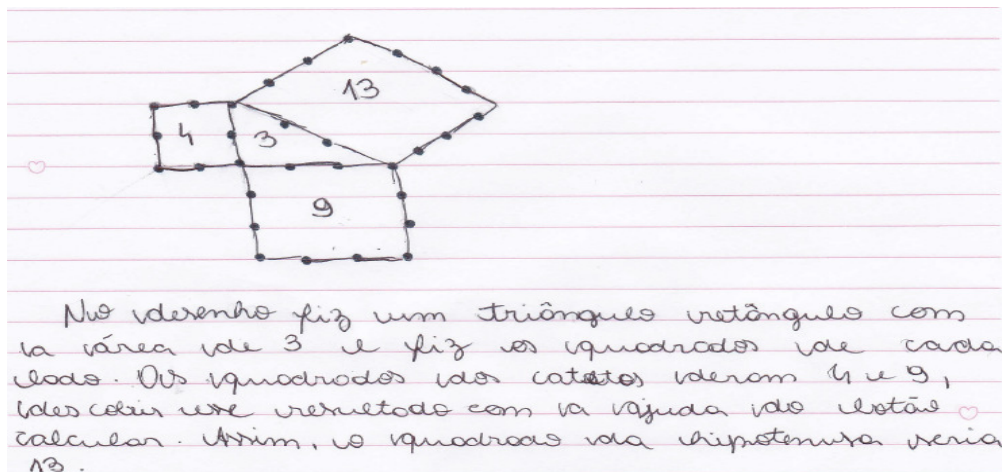 13
4
3
9
No desenho fiz um triângulo retângulo com
a área de 3 e fiz os quadrados de cada
lado. Os quadrados dos catetos deram 4 e 9,
descobri esse resultado com a ajuda do botão
calcular. Assim, o quadrado da hipotenusa seria
13.